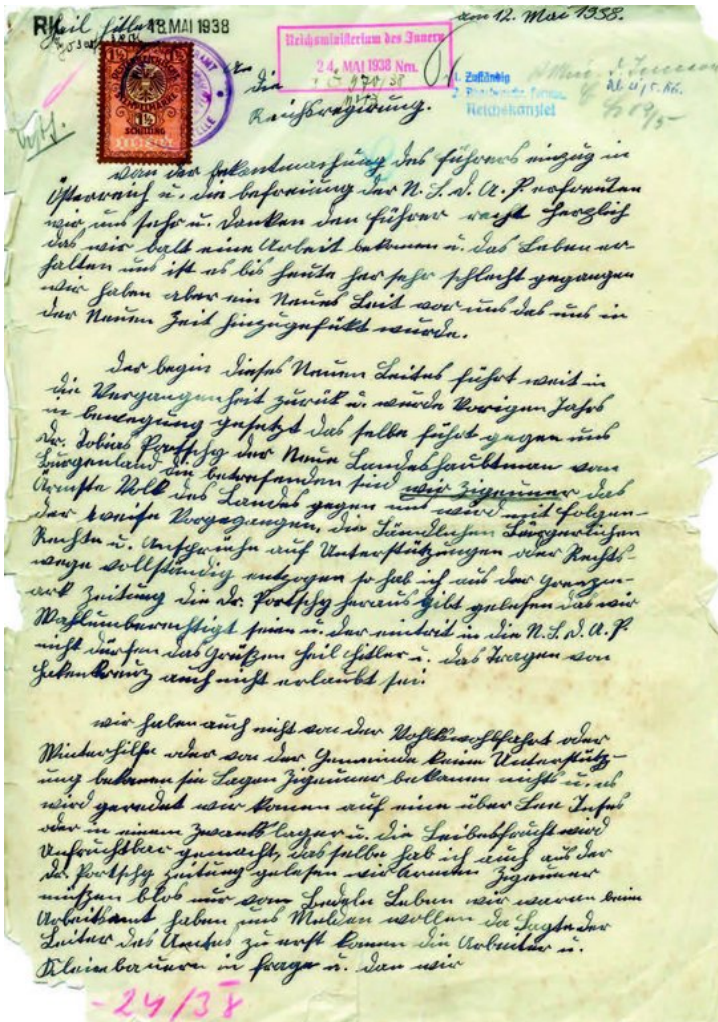 am 12. Mai 1938.
Heil Hitler
RK 18. MAI 1938
Reichsministerium des Innern
24. MAI 1938 Nm.
1. Zuständig
Reichskanzlei
1½
SCHILLING
An
die
Reichsregierung.
von der bekantmachung des führers einzug in
Österreich u. die befreiung der N. S. D. A. P. erfreuten
wir uns sehr u. danken den führer recht herzlich
das wir balt eine Arbeit bekomen u. das Leben er-
halten uns ist es bis heute her sehr schlecht gegangen
wir haben aber ein Neues Leit vor uns das uns in
der Neuen Zeit hinzugefükt wurde.
der begin dieses Neuen Leites führt weit in
die Vergangenheit zurück u. wurde Vorigen Jahrs
in bewegung gesetzt das selbe führt gegen uns
Dr. Tobias Portschy der Neue Landeshaubtman vom
Burgenland die betrefenden sind wir Zigeuner das
Ärmste Volk des Landes gegen uns wurd mit folgen-
der weise Vorgegangen, die Sämdlichen Bürgerlichen
Rechte u. Ansprüche auf Unterstützungen oder Rechts-
wege vollständig entzogen so hab ich aus der Grenzm-
ark Zeitung die Dr. Portschy heraus gibt gelesen das wir
Wahlumberechtigt seien u. der eintrit in die N. S. D. A. P.
nicht dürfen das Grüßen Heil Hitler u. das Tragen von
Hakenkreuz auch nicht erlaubt sei.
wir haben auch nicht von der Vohlkswohlfahrt oder
Winterhilfe oder von der Gemeinde keine Unterstütz-
ung bekomen sie Sagen Zigeuner bekomen nichts u. es
wird geredet wir komen auf eine über See Insel
oder in einem Zwankslager u. die Leibesfrucht werd
Unfruchtbar gemacht, das selbe hab ich auch aus der
Dr. Portschy Zeitung gelesen wir Armen Zigeuner
müßen blos nur vom Bedeln Leben wir waren beim
Arbeitsamt haben uns Melden wollen da Sagte der
Leiter des Amtes zu erst komen die Arbeiter u.
Kleinbauern in frage u. dan wir
-24/38